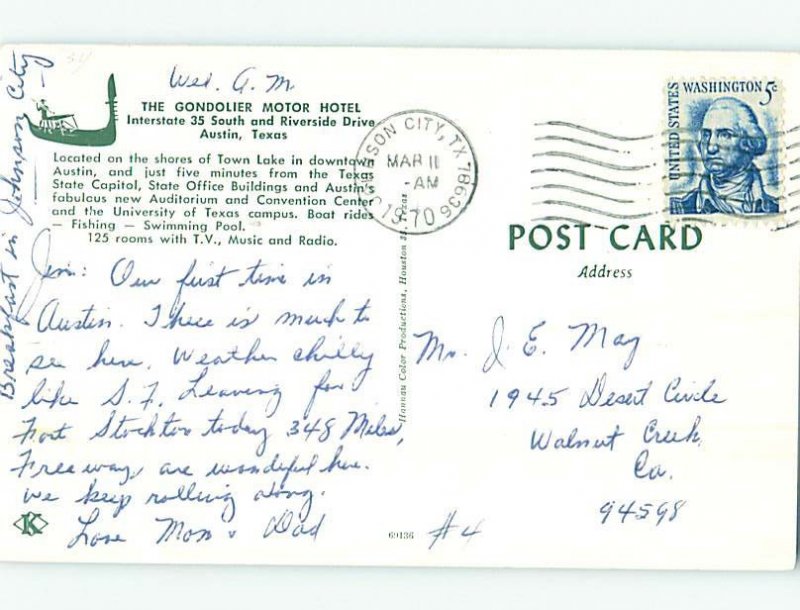 Wed. A. M
THE GONDOLIER MOTOR HOTEL
Interstate 35 South and Riverside Drive
Austin, Texas
Located on the shores of Town Lake in downtown
Austin, and just five minutes from the Texas
State Capitol, State Office Buildings and Austin's
fabulous new Auditorium and Convention Center
and the University of Texas campus. Boat rides
— Fishing — Swimming Pool.
125 rooms with T.V., Music and Radio.
Breakfast in Johnson City
Jim: Our first time in
Austin. There is much to
see here. Weather chilly
like S.F. Leaving for
Fort Stockton today 348 Miles,
Freeways are wonderful here.
We keep rolling along.
Love Mom & Dad
K
69136
#4
Hannau Color Productions, Houston 35, Texas
SON CITY, TX 78636
MAR 11
-AM
1970
UNITED STATES
WASHINGTON 5c
POST CARD
Address
Mr. J. E. May
1945 Desert Circle
Walnut Creek
Ca.
94598